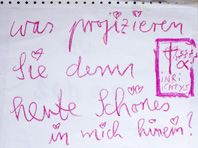 was projizieren
Sie denn
heute Schönes
in mich hinein?
INRI
ICHTYS